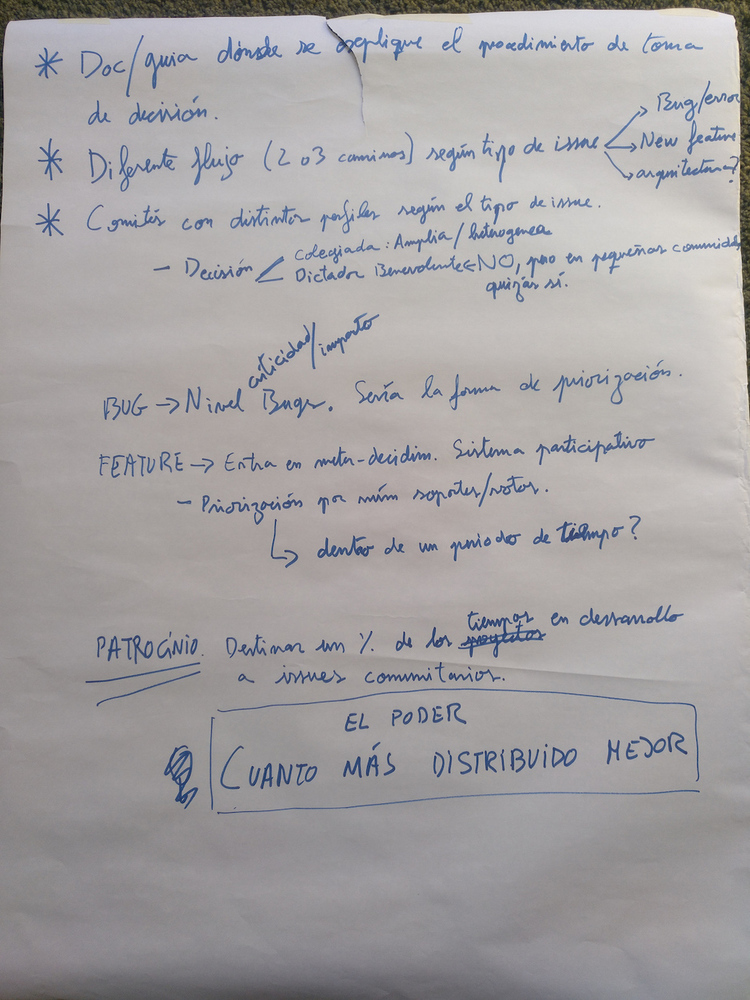 * Doc/guia dónde se explique el procedimiento de toma
de decisión.
* Diferente flujo (2 o 3 caminos) según tipo de issue
Bug/error
New feature
arquitectura?
* Comités con distintos perfiles según el tipo de issue.
- Decisión
Colegiada: Amplia/heterogenea
Dictador Benevolente ← NO, pero en pequeñas comunidades
quizás sí.
criticidad/impacto
BUG → Nivel Bugs. Sería la forma de priorización.
FEATURE → Entra en meta-decidim. Sistema participativo
- Priorización por núm soportes/votos.
↳ dentro de un periodo de tiempo?
tiempos
PATROCINIO. Destinar un % de los proyectos en desarrollo
a issues comunitarios.
EL PODER
CUANTO MÁS DISTRIBUIDO MEJOR